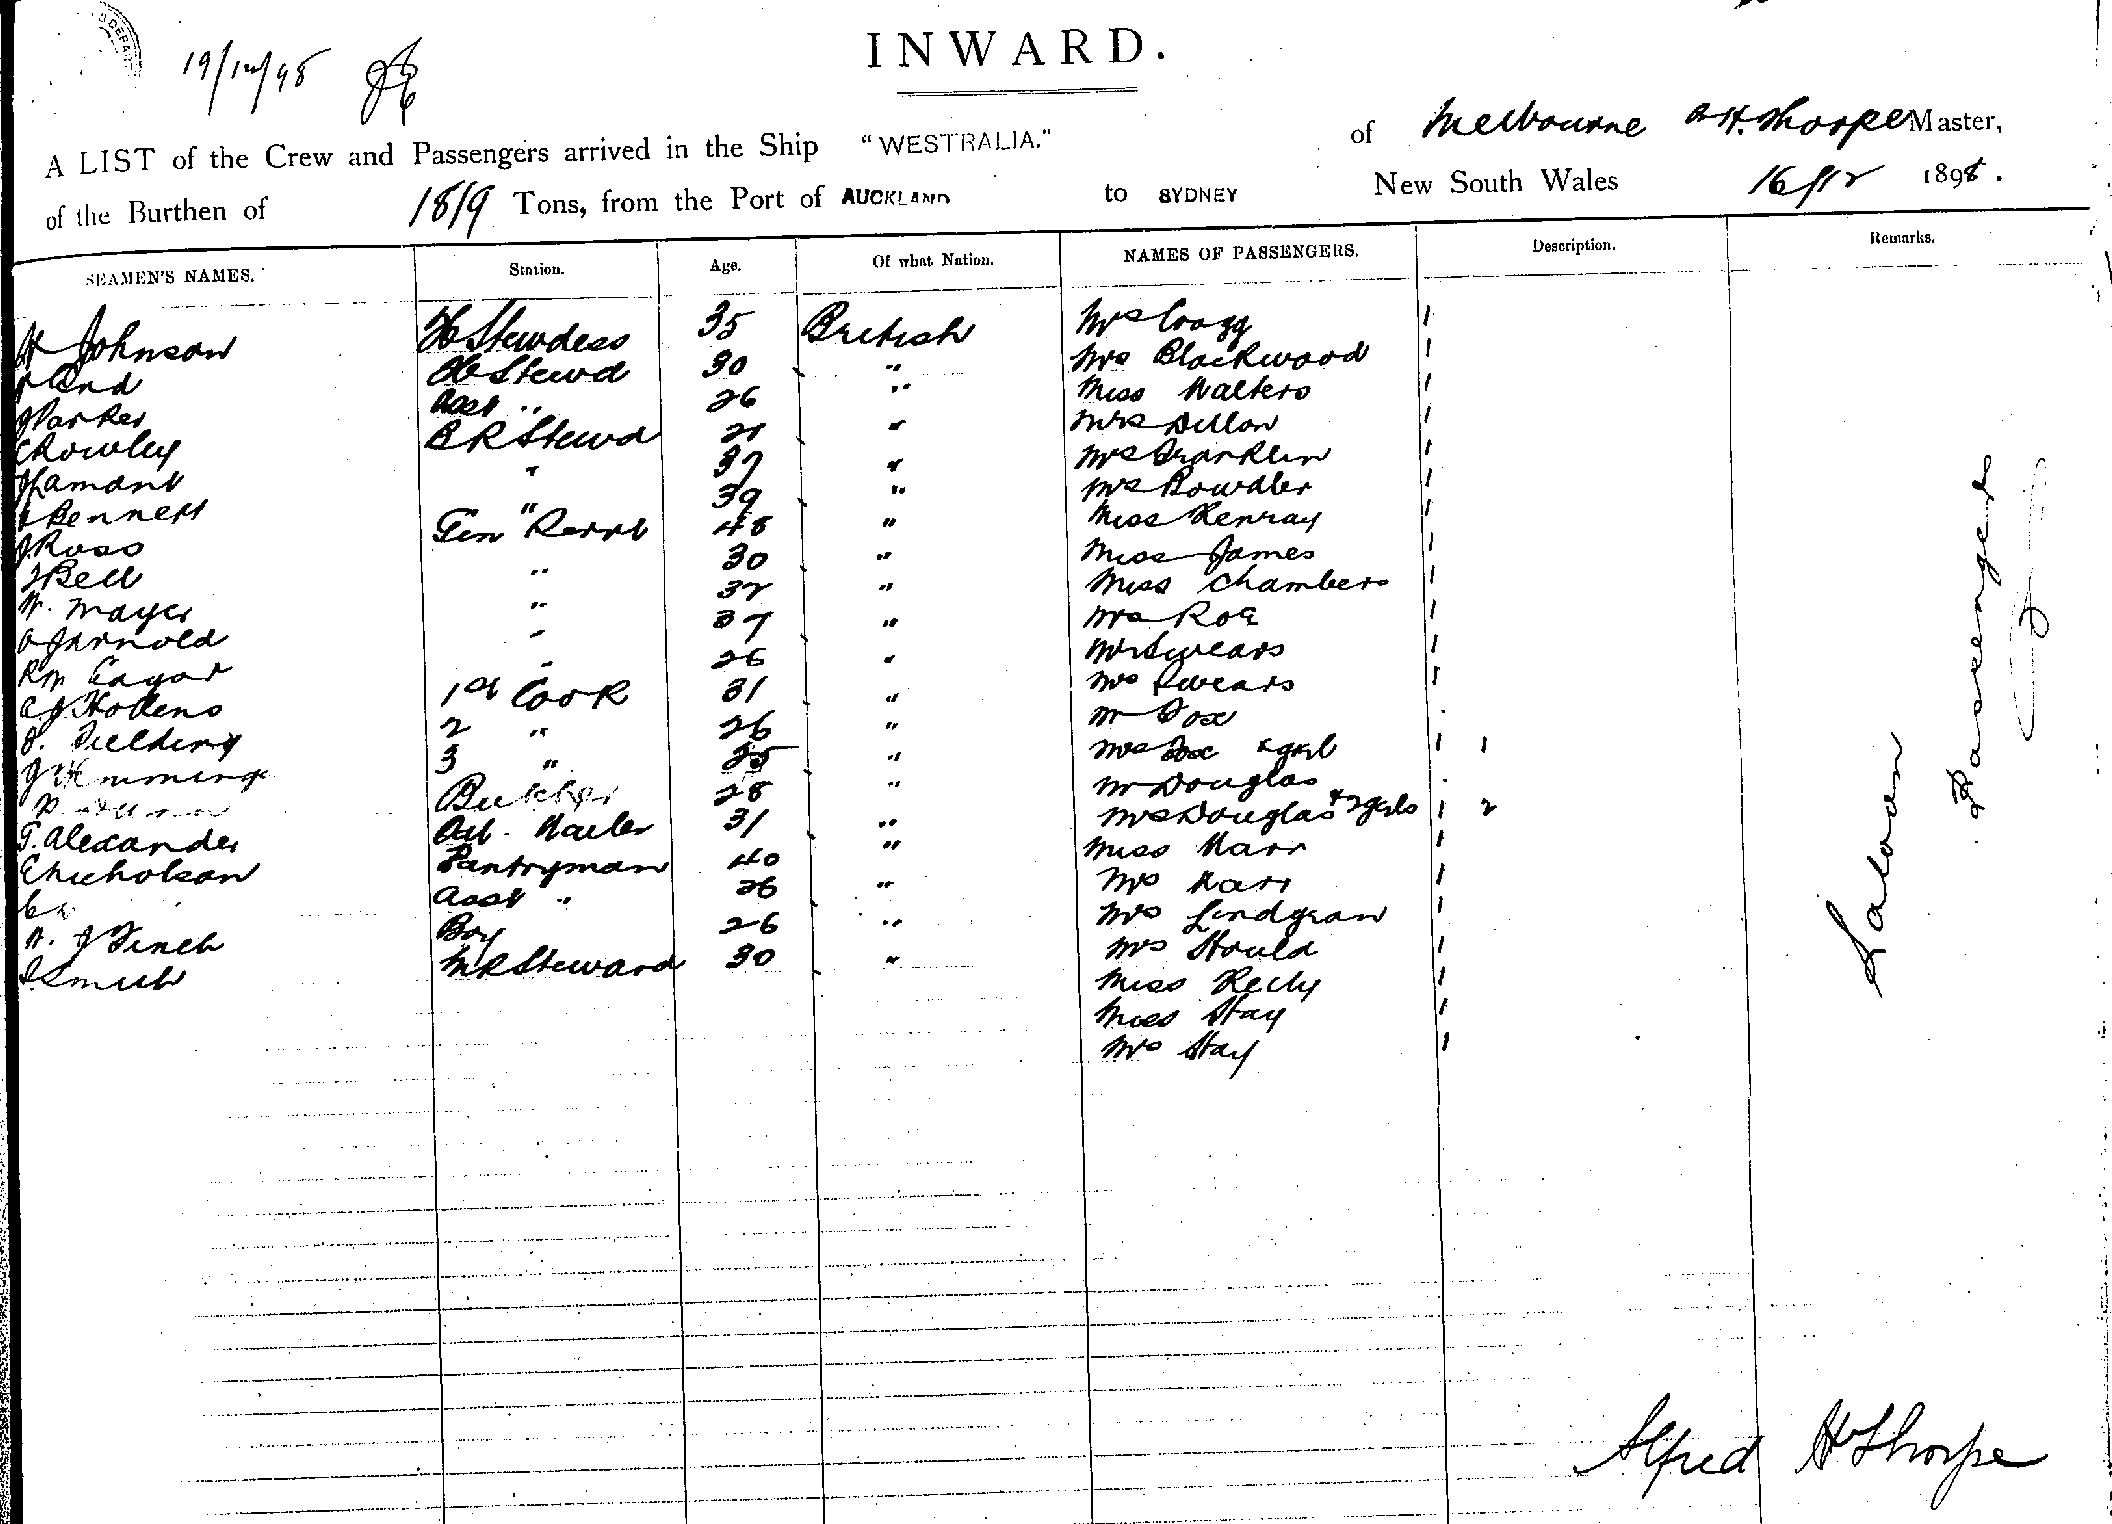 19/12/98
INWARD.
A LIST of the Crew and Passengers arrived in the Ship "WESTRALIA." of Melbourne A H. Thorpe Master,
of the Burthen of 1819 Tons, from the Port of AUCKLAND to SYDNEY New South Wales 16/12 1898.
SEAMEN'S NAMES. Station. Age. Of what Nation. NAMES OF PASSENGERS. Description. Remarks.
Johnson Stewdess 35 British Mrs Cragg 1
Stewd 30 " Mrs Blackwood 1
J Parker Asst " 26 " Miss Walters 1
C Rowley B R Stewd 21 " Mrs Dillon 1
Hamant " 37 " Mrs Franklin 1
Bennett " 39 " Mrs Bowdler 1
J Ross Gen 48 " Miss Kenray 1
J Bell " 30 " Miss James 1
W. Mayer " 32 " Miss Chambers 1
A J Arnold " 37 " Mrs Roe 1
R M " 26 " Mr Swears 1
C J Hollens 1st Cook 31 " Mrs Swears 1
J. Fielding 2 " 26 " Mr Fox
J Hemmings 3 " 25 " Mrs Fox & girl 1 1
Butcher 28 " Mr Douglas
T. Alexander 31 " Mrs Douglas & 2 girls 1 2
E Nicholson Pantryman 40 " Miss Marr 1
Asst " 26 " Mrs Marr 1
W. J Finch Boy 26 " Mrs Lindgran 1
J. Smith Steward 30 " Mrs Hould 1
Miss Reily 1
Miss Hay 1
Mrs Hay 1
Saloon
Passengers
Alfred H Thorpe